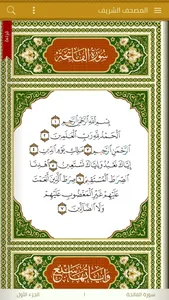 المصحف الشريف
سورة الفاتحة
بسم الله الرحمن الرحيم ١
الحمد لله رب العلمين ٢
الرحمن الرحيم ٣ ملك يوم الدين ٤
إياك نعبد وإياك نستعين ٥ اهدنا
الصرط المستقيم ٦ صرط الذين أنعمت
عليهم غير المغضوب عليهم
ولا الضالين ٧
وآياتها سبع
سورة الفاتحة
1
الجزء الأول